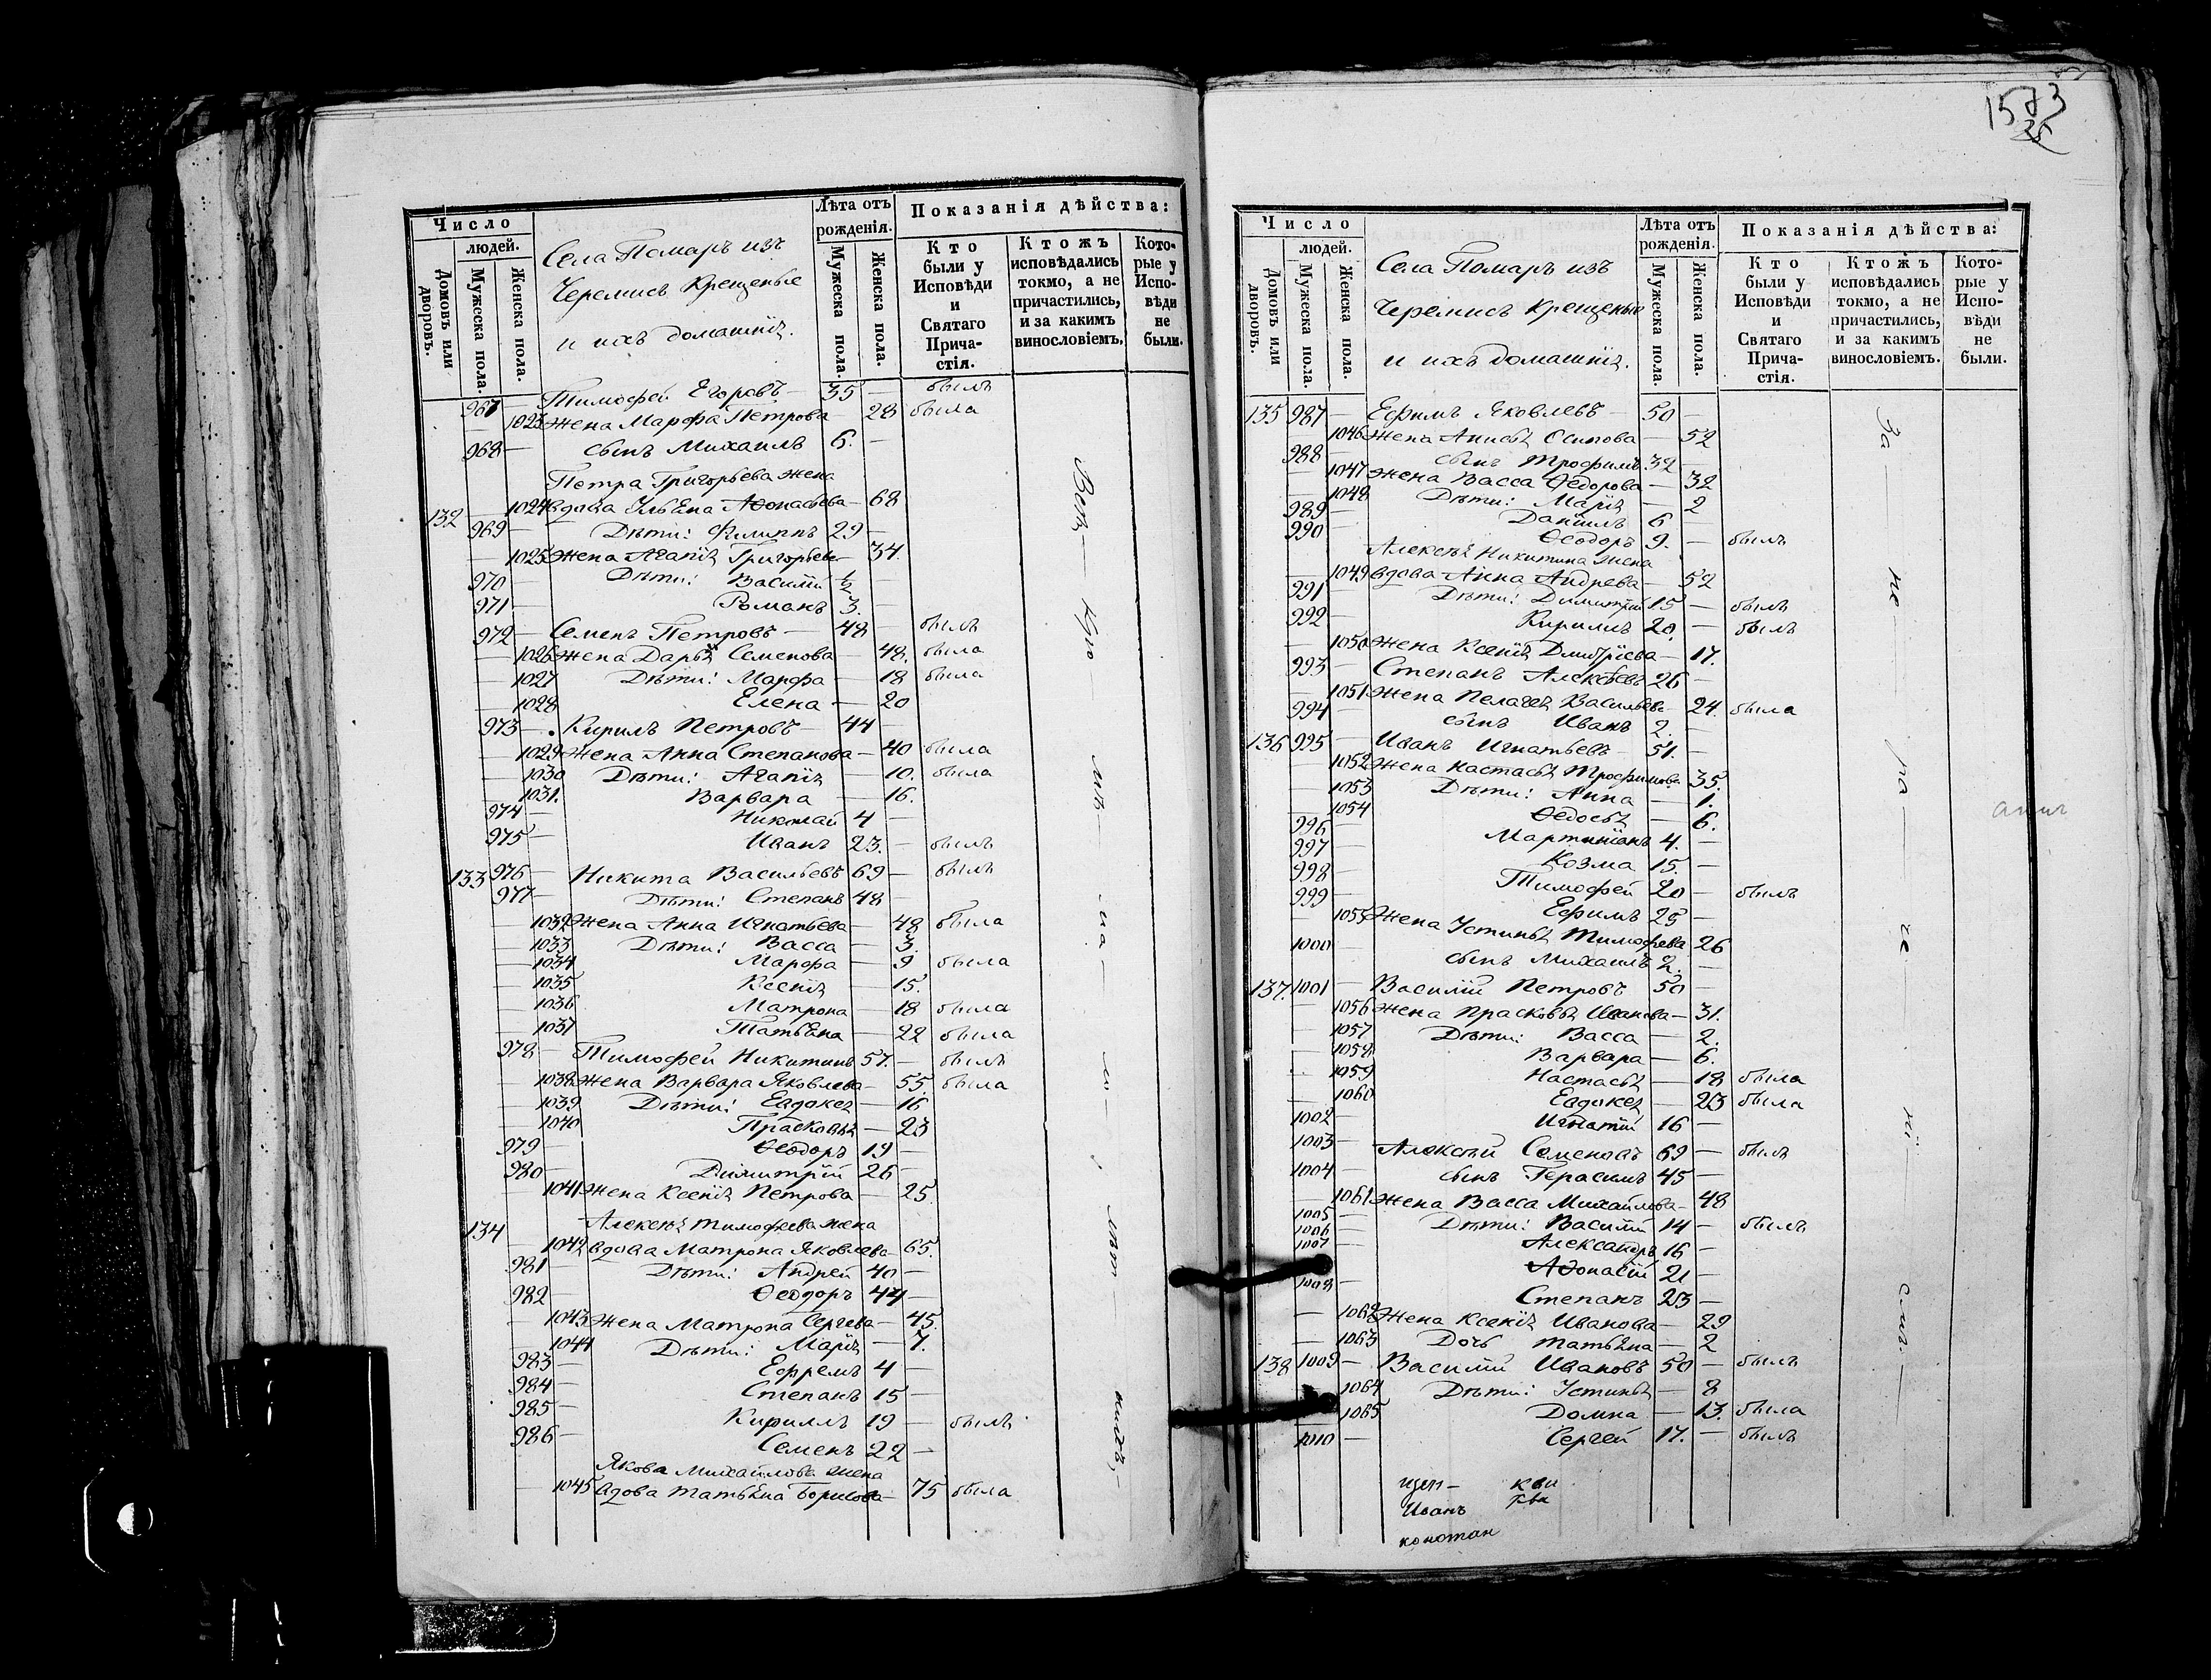 1573
25
Число
людей.
Домовъ или дворовъ.
Мужеска пола.
Женска пола.
Села Помаръ изъ
Черемисъ Крещеные
и ихъ домашніе.
Лѣта отъ рожденія.
Мужеска пола.
Женска пола.
Показанія дѣйства:
Кто были у Исповѣди и Святаго Причастія.
Ктожъ исповѣдались токмо, а не причастились, и за какимъ винословіемъ.
Которые у Исповѣди не были.
967 — Тимофей Егоровъ — 35 — былъ
— 1023 Жена Марфа Петрова 28 была
968 — сынъ Михаилъ 6. —
Петра Григорьева жена
132 1024 вдова Ульяна Аѳонасьева — 68
969 — Дѣти: Филиппъ 29 —
— 1025 Жена Агапія Григорьева — 34.
970 — Дѣти: Василій ½
971 — Романъ 3. —
972 — Семенъ Петровъ — 48 — былъ
— 1026 Жена Дарья Семенова — 48. была
— 1027 Дѣти: Марфа — 18 была
— 1028 Елена — 20
973 — Кирилъ Петровъ — 44 —
— 1029 Жена Анна Степанова — 40 была
— 1030 Дѣти: Агапія — 10. была
— 1031. Варвара — 16.
974 — Николай 4 —
975 — Иванъ 23. — былъ
133 976 — Никита Васильевъ 69 — былъ
977 — Дѣти: Степанъ 48 —
— 1032 Жена Анна Игнатьева — 48 была
— 1033 Дѣти: Васса — 3.
— 1034 Марфа — 9 была
— 1035 Ксенія — 15.
— 1036 Матрона — 18 была
— 1037 Татьяна — 22 была
978 — Тимофей Никитинъ 57. — былъ
— 1038 Жена Варвара Яковлева — 55 была
— 1039 Дѣти: Евдокея — 16
— 1040 Прасковья — 23
979 — Ѳеодоръ 19 —
980 — Димитрій 26 —
— 1041 Жена Ксенія Петрова — 25.
134 Алексѣя Тимофеева жена
— 1042 вдова Матрона Яковлева — 65.
981 — Дѣти: Андрей 40 —
982 — Ѳеодоръ 44 —
— 1043 Жена Матрона Сергева — 45.
— 1044 Дѣти: Марія — 7.
983 — Ефремъ 4 —
984 — Степанъ 15 —
985 — Кириллъ 19 — былъ
986 — Семенъ 22 —
Якова Михайлова жена
— 1045 вдова Татьяна Борисова — 75 была
Число
людей.
Домовъ или дворовъ.
Мужеска пола.
Женска пола.
Села Помаръ изъ
Черемисъ Крещеные
и ихъ домашніе.
Лѣта отъ рожденія.
Мужеска пола.
Женска пола.
Показанія дѣйства:
Кто были у Исповѣди и Святаго Причастія.
Ктожъ исповѣдались токмо, а не причастились, и за какимъ винословіемъ.
Которые у Исповѣди не были.
135 987 — Ефимъ Яковлевъ — 50 —
— 1046 Жена Анисья Осипова — 52
988 — сынъ Трофимъ 32 —
— 1047 Жена Васса Ѳедорова — 32
— 1048 Дѣти: Марія — 2
989 — Даніилъ 6 —
990 — Ѳеодоръ 9. — былъ
Алексѣя Никитина жена
— 1049 вдова Анна Андрева — 52
991 — Дѣти: Димитрій 15 — былъ
992 — Кириллъ 20. — былъ
— 1050 Жена Ксенія Дмитріева — 17.
993 — Степанъ Алексѣевъ 26 —
— 1051 Жена Пелагея Васильева — 24. была
994 сынъ Иванъ 2. —
136 995 — Иванъ Игнатьевъ — 51. —
— 1052 Жена Настасья Трофимова 35.
— 1053 Дѣти: Анна — 1.
— 1054 Ѳедосья — 6.
996 — Мартиніанъ 4. —
997 — Козма 15. —
998 — Тимофей 20 — былъ
999 — Ефимъ 25 —
— 1055 Жена Устинья Тимофева 26
1000 — сынъ Михаилъ 2. —
137. 1001 — Василій Петровъ 50 —
— 1056 Жена Прасковья Иванова — 31.
— 1057 Дѣти: Васса — 2.
— 1058 Варвара — 6.
— 1059 Настасья — 18 была
— 1060 Евдокея — 23 была
1002 — Игнатій 16 —
1003 — Алексѣй Семеновъ 69 — былъ
1004 — сынъ Герасимъ 45 —
— 1061 Жена Васса Михайлова — 48
1005 — Дѣти: Василій 14 — былъ
1006 — Александръ 16 —
1007 — Аѳонасій 21 —
1008 — Степанъ 23 —
— 1062 Жена Ксенія Иванова — 29
— 1063 Дочь Татьяна — 2
138 1009 — Василій Ивановъ 50 — былъ
1064 Дѣти: Устинья — 8
1065 Домна — 13. была
1010 — Сергей 17. — былъ
Иванъ
констан